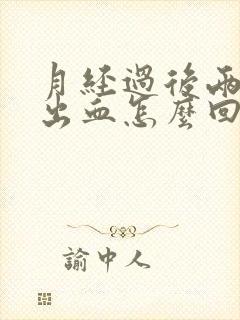 月經過後兩
出血怎麼回
諭中人